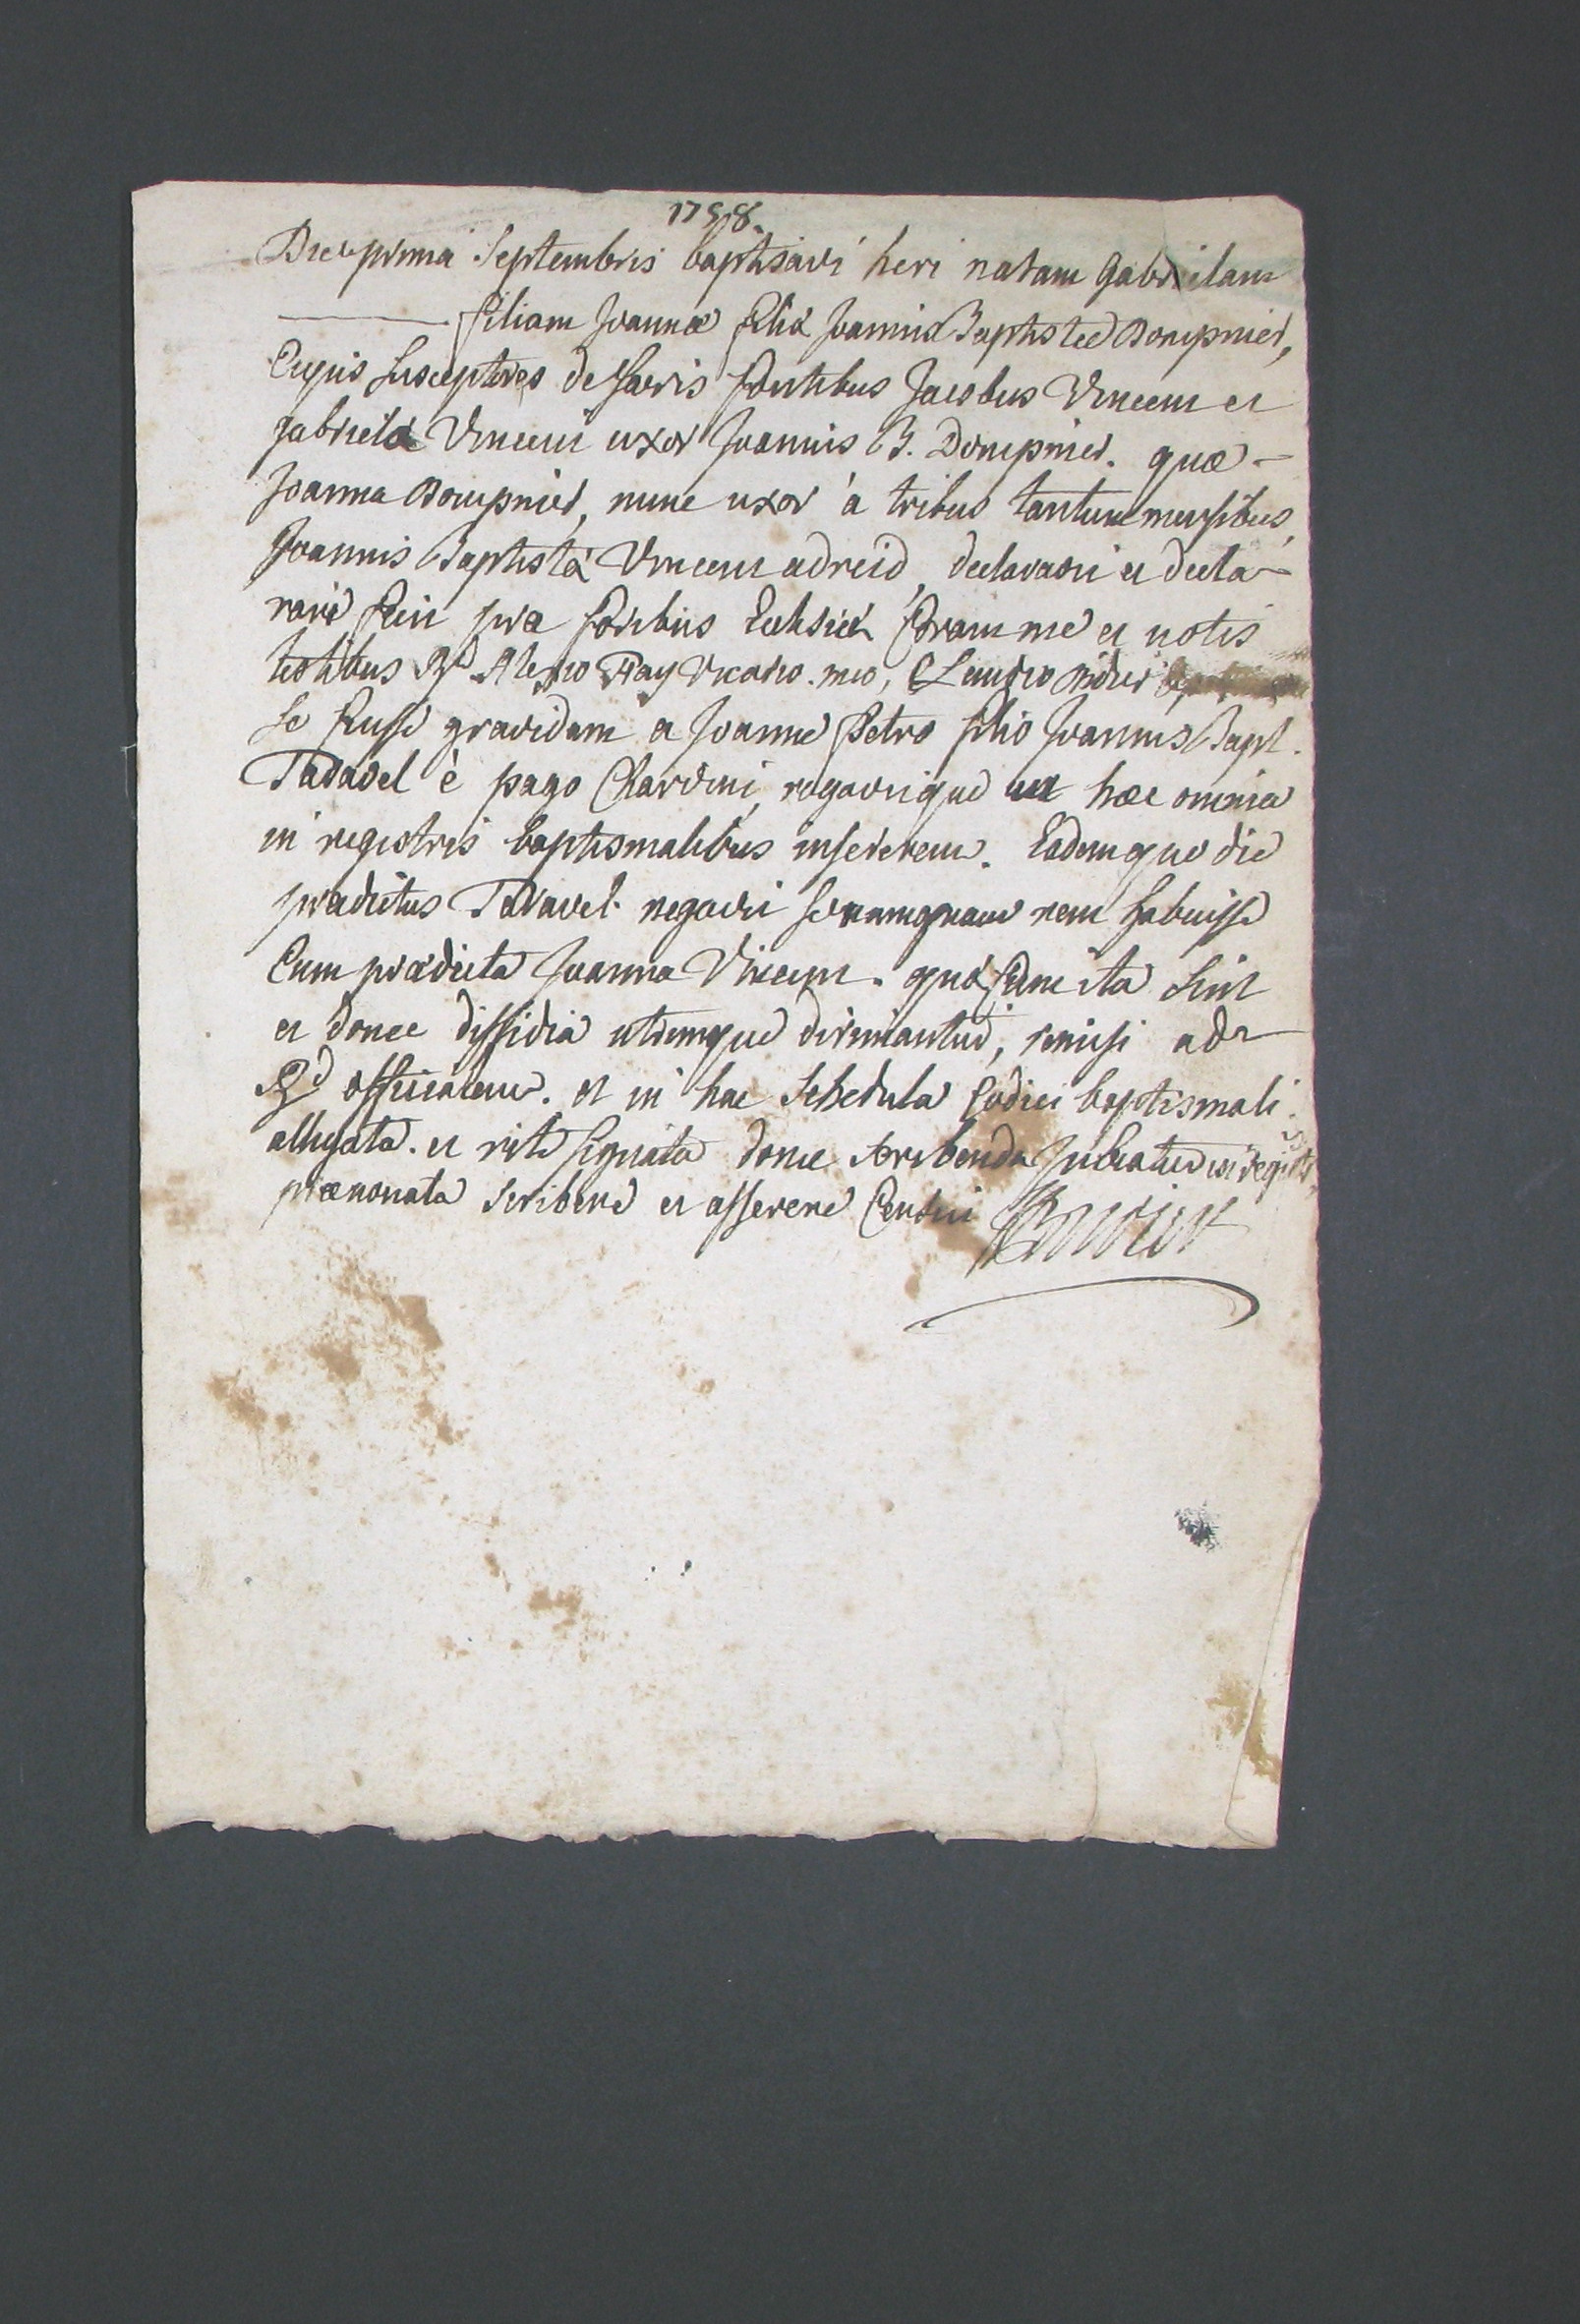 1758.
Die prima Septembris baptisavi heri natam Gabrielam
filiam Joannæ filiæ Joannis Baptistæ Dompnier,
Cujus susceptores de sacris fontibus Jacobus Vincent et
gabriela Vincent uxor Joannis B. Dompnier. quæ -
Joanna Dompnier, nunc uxor à tribus tantum mensibus,
Joannis Baptistæ Vincent, declaravit et decla-
rari fecit præ foribus Ecclesiæ Coram me et notis
testibus Rd Vicario meo,
se fuisse gravidam a Joanne Petro filio Joannis Bapt.
Taravel è pago Charvini, rogavitque ut hæc omnia
in registris baptismalibus insererem. Eademque die
prædictus Taravel negavit se numquam rem habuisse
Cum prædicta Joanna Vincent. quæ cum ita sint
et donec dissidia utrimque dirimantur, remisi ad
Rd officialem. et in hac Schedula Codici baptismali
alligata. et rite signata donec scribenda jubeatur in regist
prænotata scribere et asserere Censui